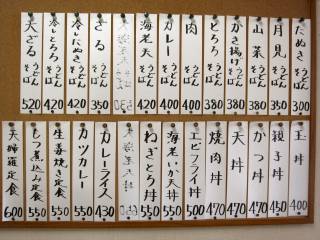 たぬき うどん そば 300
月見 うどん そば 350
山菜 うどん そば 380
かき揚げ うどん そば 380
とろろ うどん そば 380
肉 うどん そば 400
カレー うどん そば 400
海老天 うどん そば 420
ざる うどん そば 350
冷したぬき うどん そば 420
冷しとろろ うどん そば 420
天ざる うどん そば 520
玉丼 400
親子丼 450
かつ丼 470
天丼 470
焼肉丼 470
エビフライ丼 500
海老いか天丼 550
ねぎとろ丼 550
カレーライス 430
カツカレー 550
生姜焼き定食 550
もつ煮込み定食 550
天婦羅定食 600